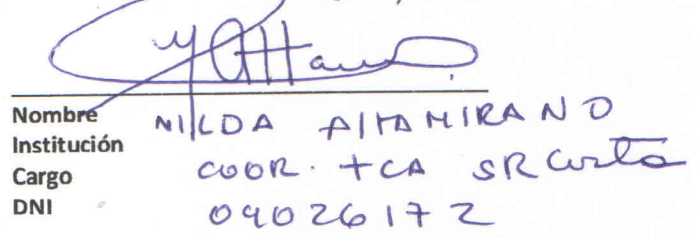 Nombre NILDA ALTAMIRANO
Institución
Cargo COOR. TCA SR Costa
DNI 09026172